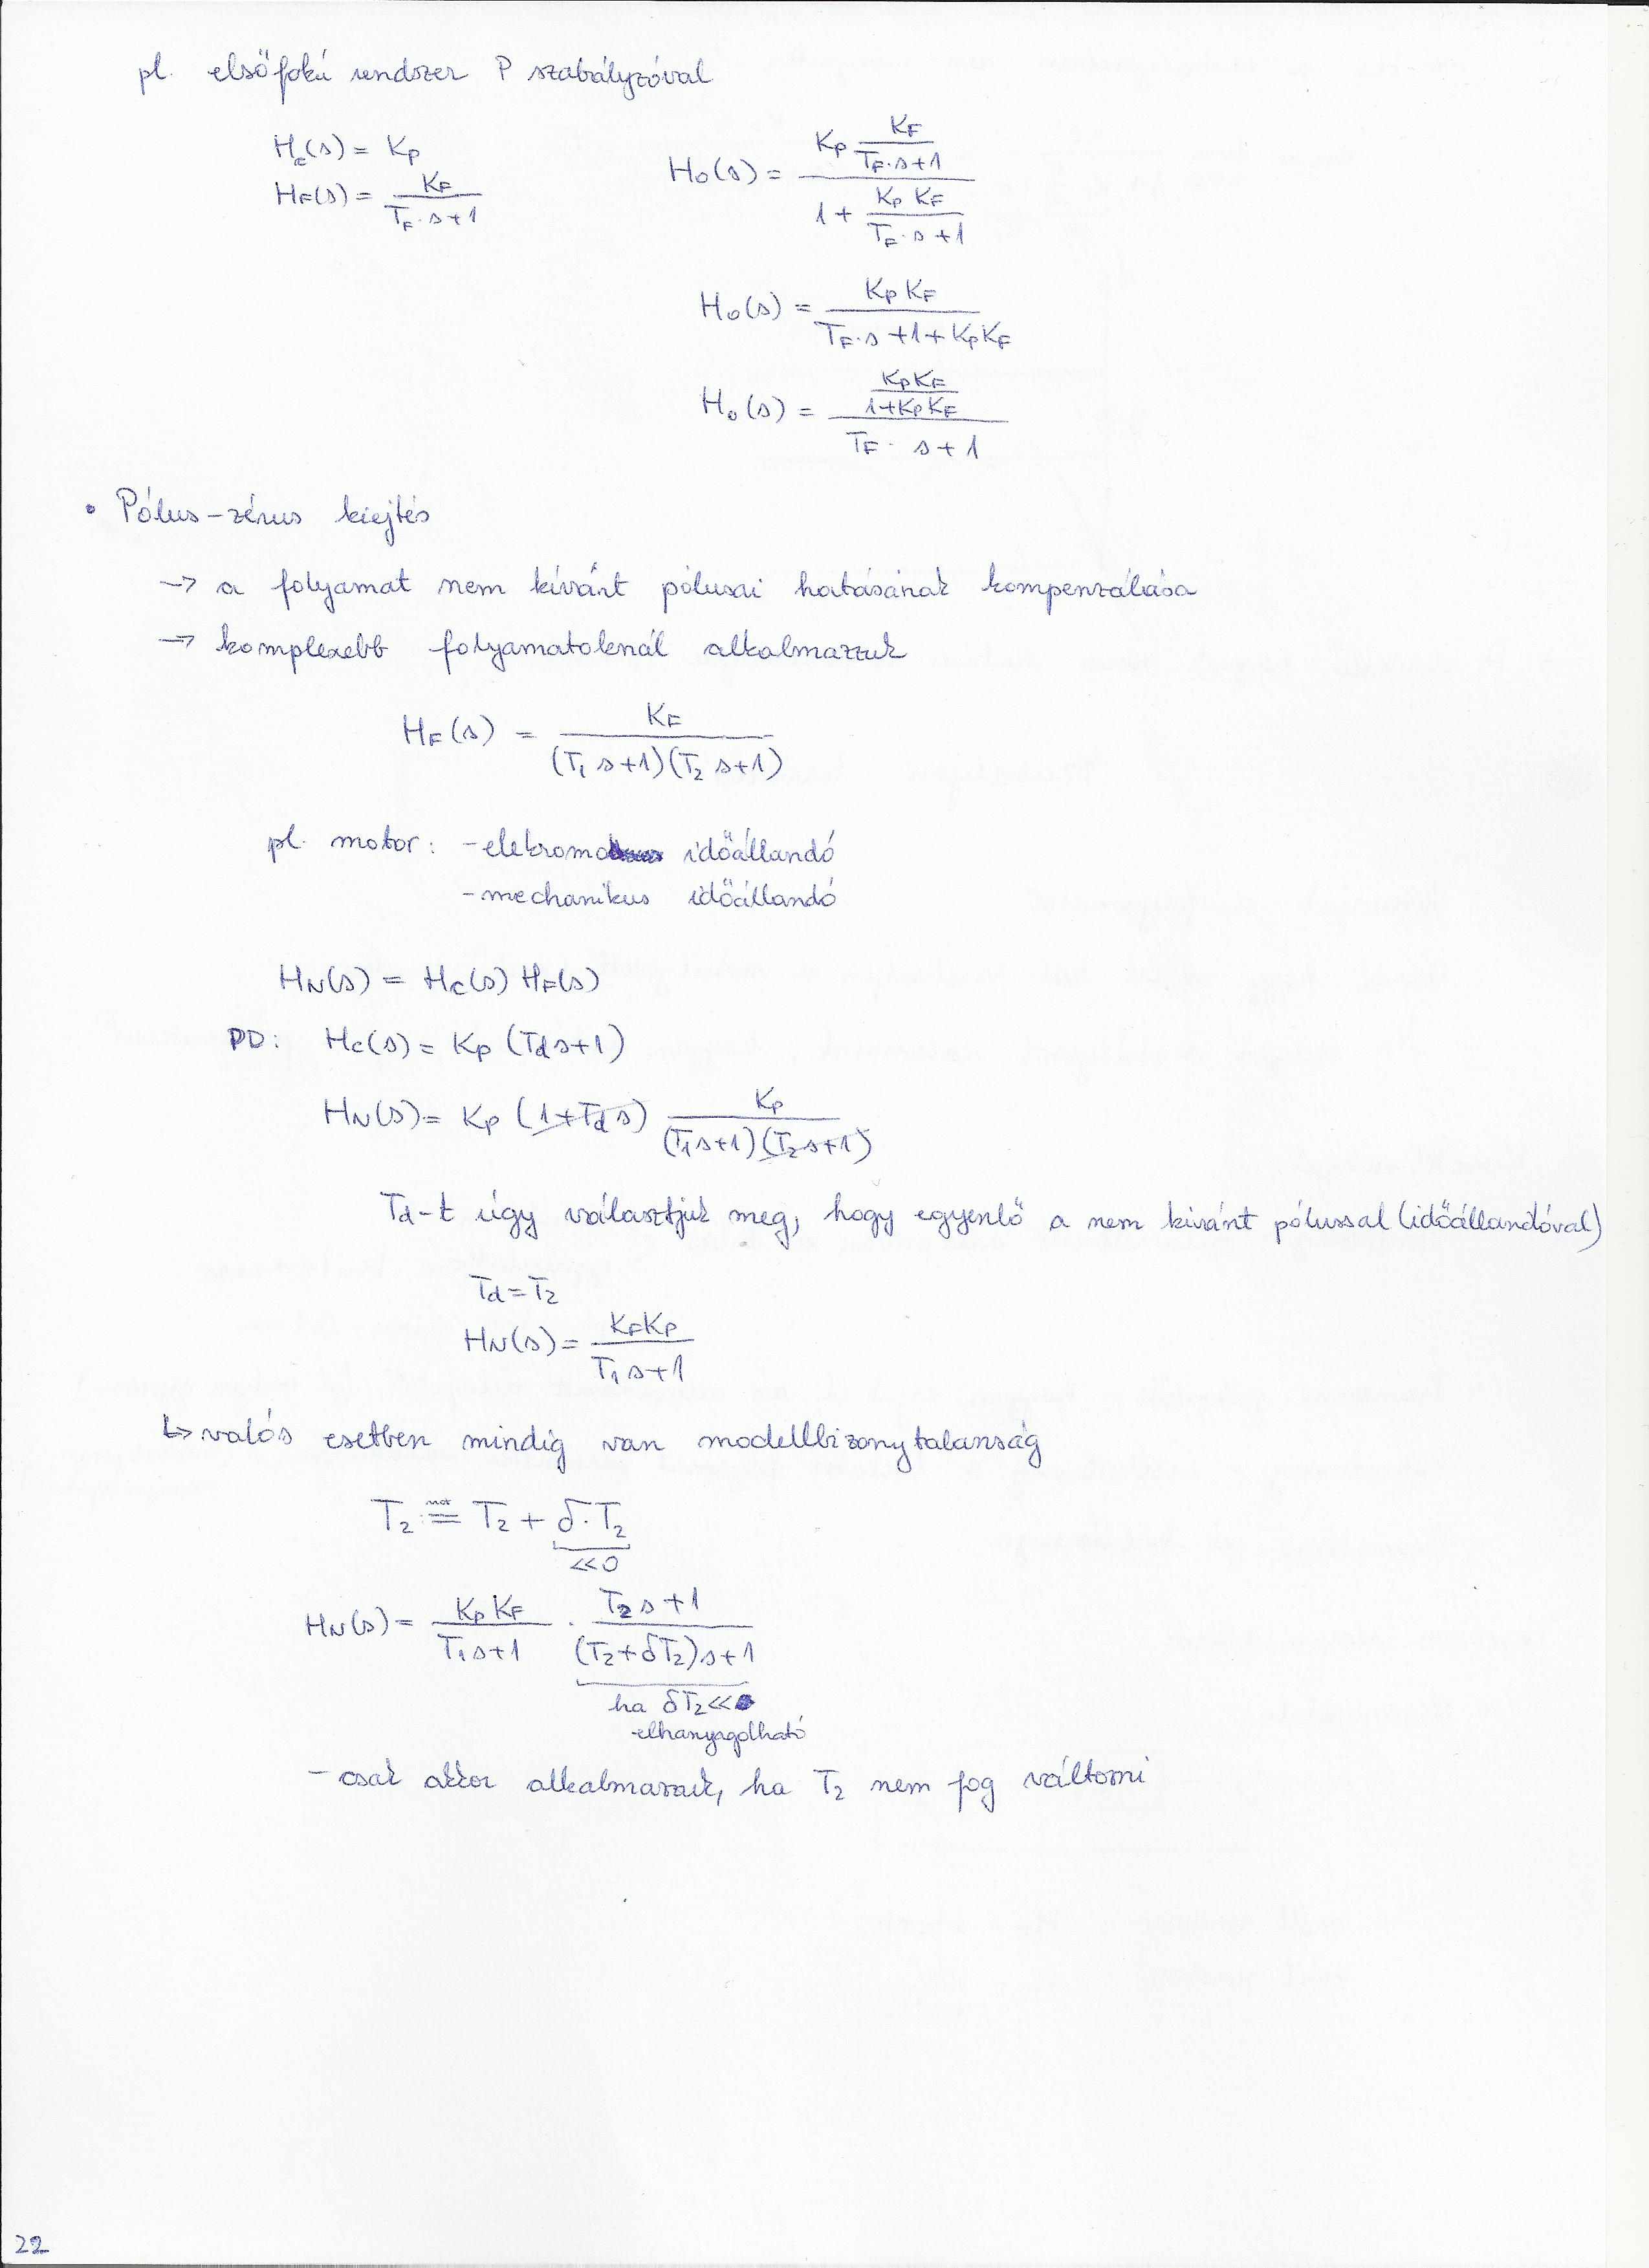 pl. elsőfokú rendszer P szabályzóval
H_c(s) = K_P
H_F(s) = \frac{K_F}{T_F·s+1}
H_0(s) = \frac{K_P \frac{K_F}{T_F·s+1}}{1 + \frac{K_P K_F}{T_F·s+1}}
H_0(s) = \frac{K_P K_F}{T_F·s+1+K_P K_F}
H_0(s) = \frac{\frac{K_P K_F}{1+K_P K_F}}{T_F· s+1}
• Pólus-zérus kiejtés
→ a folyamat nem kívánt pólusai hatásának kompenzálása
→ komplexebb folyamatoknál alkalmazzuk
H_F(s) = \frac{K_F}{(T_1 s+1)(T_2 s+1)}
pl. motor: - elekromo időállandó
- mechanikus időállandó
H_N(s) = H_C(s) H_F(s)
PD: H_C(s) = K_P (T_d s+1)
H_N(s) = K_P (1+T_d s) \frac{K_P}{(T_1 s+1)(T_2 s+1)}
T_d-t úgy választjuk meg, hogy egyenlő a nem kívánt pólussal (időállandóval)
T_d = T_2
H_N(s) = \frac{K_F K_P}{T_1 s+1}
↳ valós esetben mindig van modellbizonytalanság
T_2 \overset{not}{=} T_2 + δ·T_2
<<0
H_N(s) = \frac{K_P K_F}{T_1 s+1} · \frac{T_2 s+1}{(T_2+δT_2)s+1}
ha δT_2 <<
elhanyagolható
- csak akkor alkalmazzuk, ha T_2 nem fog változni
22